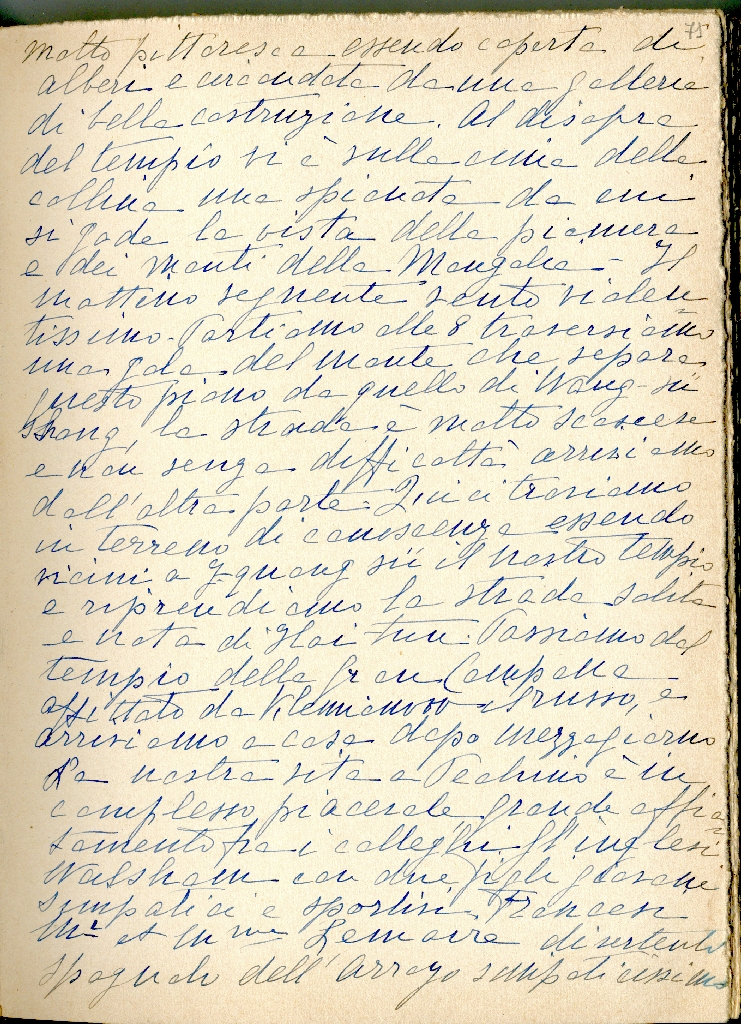 75
molto pittoresca essendo coperta di
alberi e circondata da una galleria
di bella costruzione. Al disopra
del tempio vi è sulla cima della
collina una spianata da cui
si gode la vista della pianura
e dei monti della Mongolia - Il
mattino seguente vento violen
tissimo. Partiamo alle 8 traversiamo
una gola del monte che separa
questo piano da quello di Wang-sü
shang, la strada è molto scoscesa
e non senza difficoltà arriviamo
dall'altra parte. Quivi ci troviamo
in terreno di conoscenza essendo
vicini a Y-quang sü il nostro tempio
e riprendiamo la strada solita
e nota di Hai tien. Passiamo dal
tempio della Gran Campana
affittato da il russo, e
arriviamo a casa dopo mezzogiorno
La nostra vita a Pechino è in
complesso piacevole grande affia
tamento fra i colleghi. Gl'inglesi
Walsham con due figli giovani
simpatici e sportivi. Francesi
Mr et Mme Lemaire divertenti
spagnolo dell'Arroyo simpaticissimo